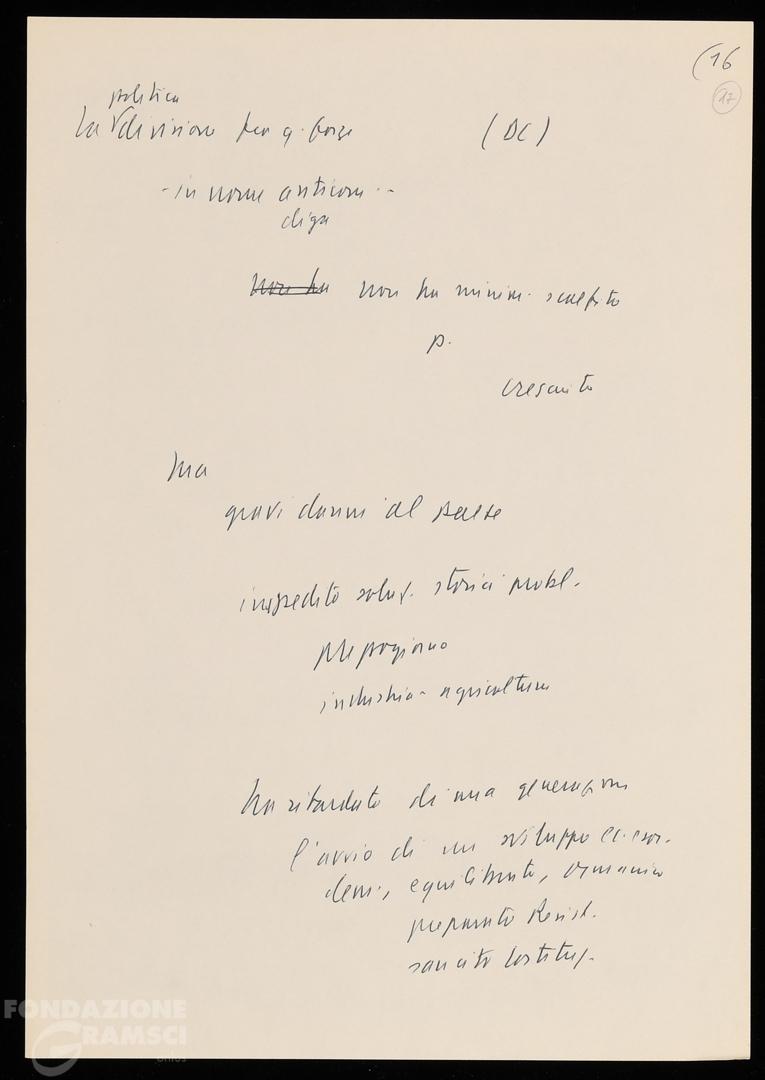 (16
17
politica
La divisione fra q. forze (DC)
- in nome anticom. -
diga
non ha non ha minim. scalfito
p.
cresciuto
Ma
gravi danni al Paese
impedito soluz. storici probl.
Mezzogiorno
industria - agricoltura
ha ritardato di una generazione
l'avvio di un sviluppo ec.
dem., equilibrato, organico
preparato Resist.
sancito Costituz.
FONDAZIONE
GRAMSCI
onlus